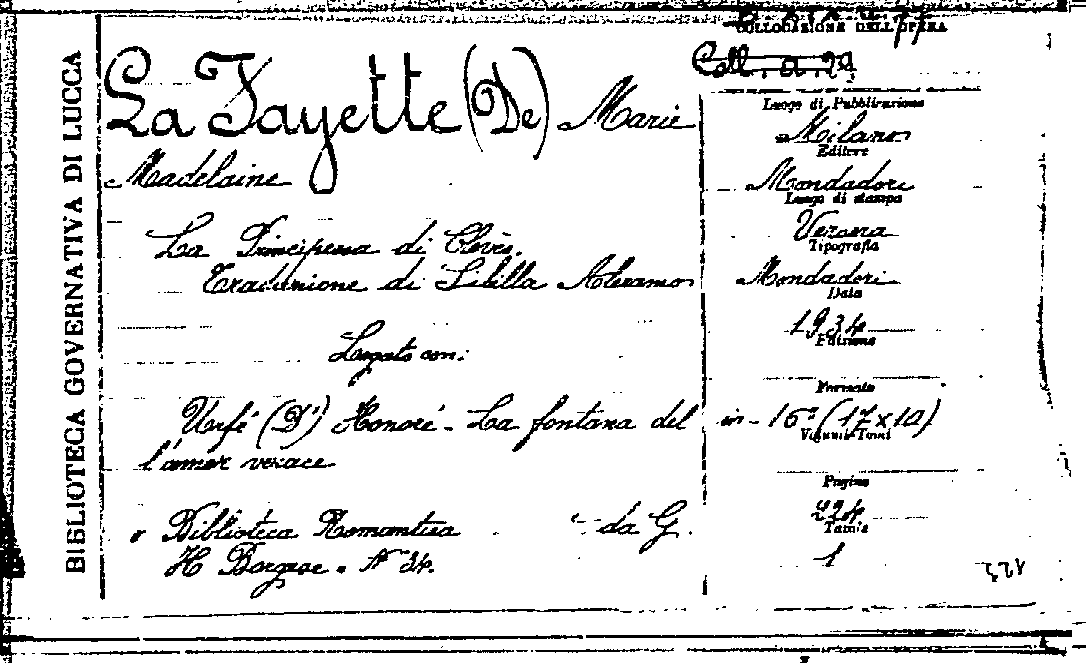 BIBLIOTECA GOVERNATIVA DI LUCCA
COLLOCAZIONE DELL'OPERA
Coll. a. 29
La Fayette (De) Marie
Madelaine
La Principessa di Clèves.
Traduzione di Sibilla Aleramo
Legato con:
Urfé (D') Honoré - La fontana del
l'amor verace
Biblioteca Romantica da G.
H Borgese. N 34.
Luogo di Pubblicazione
Milano
Editore
Mondadori
Luogo di stampa
Verona
Tipografia
Mondadori
Data
1934
Edizione
Formato
in-16° (17x10)
Volumi-Tomi
Pagine
224
Tomi
1